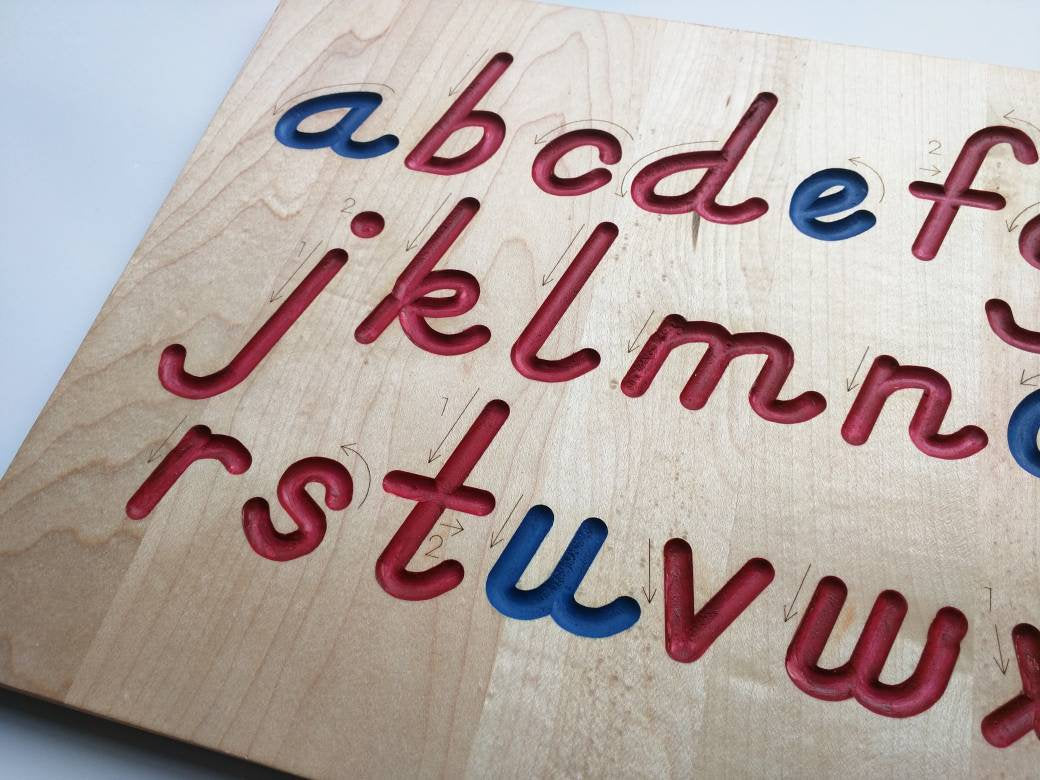 a b c d e 2 f
1 2 j k l m n
r s 1 2 t u v w 1 x